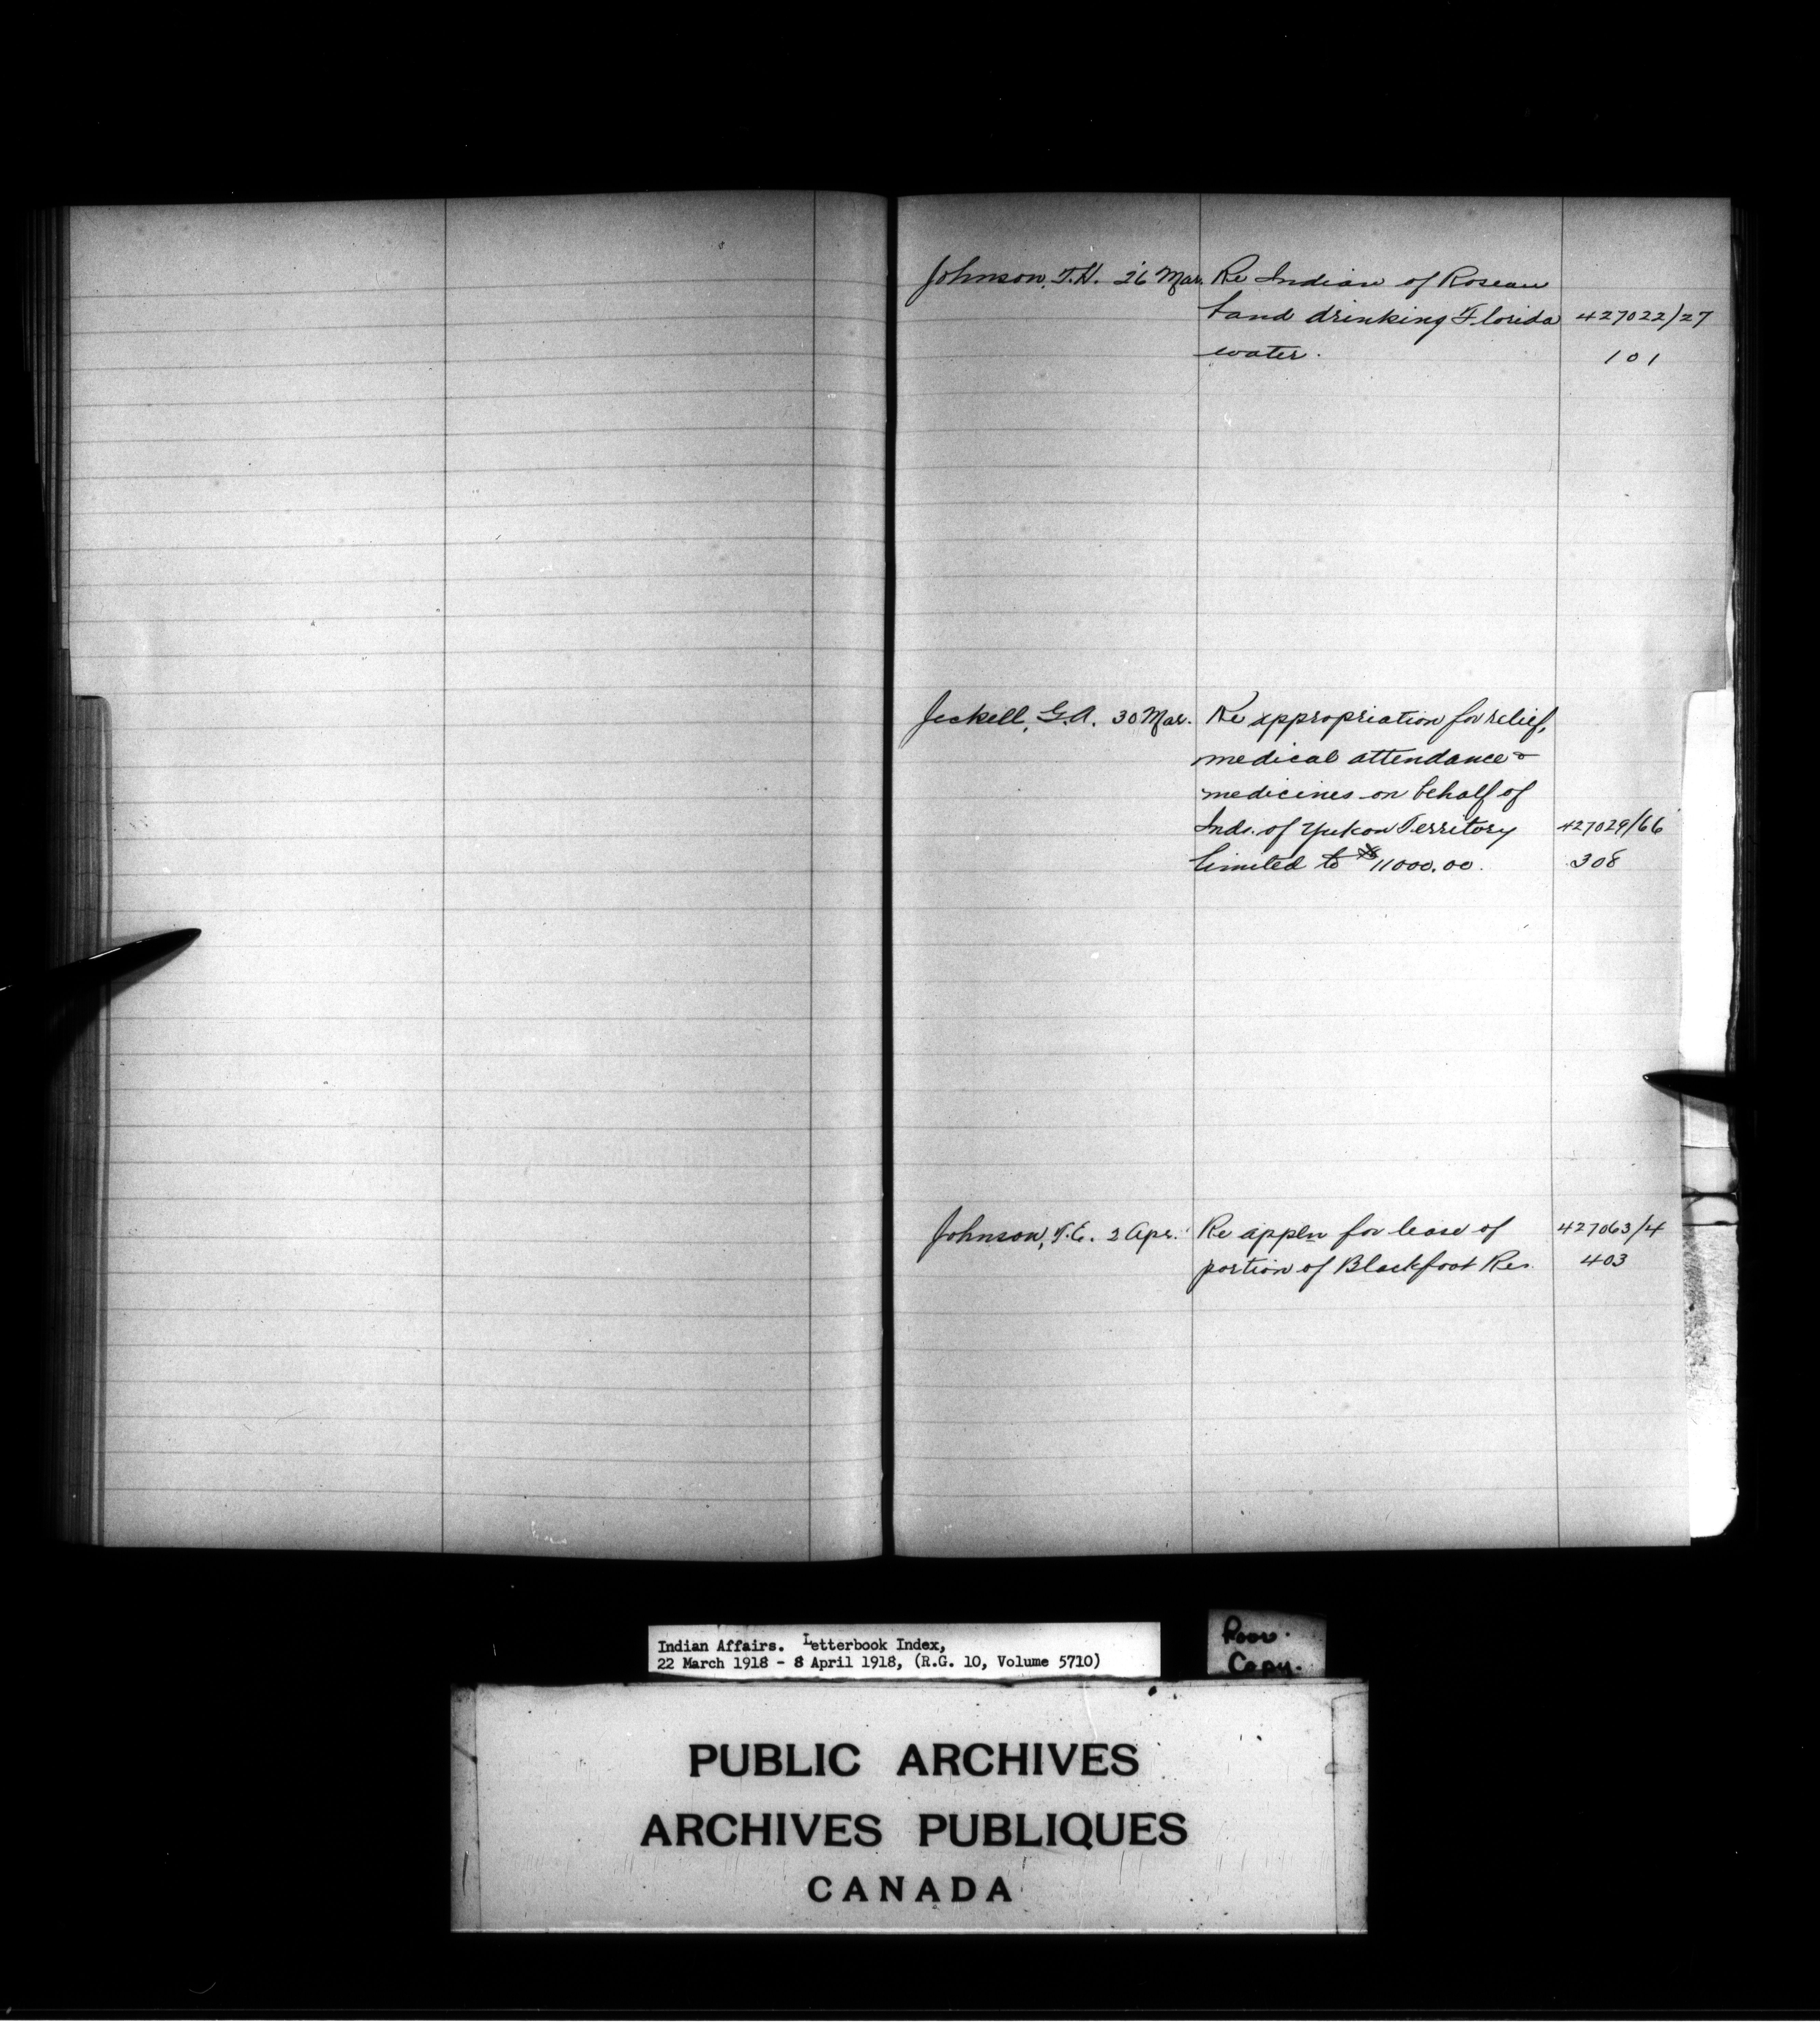 Johnson, T.H. 26 Mar. Re Indian of Roseau
band drinking Florida 427022/27
water. 101
Jeckell, G.A. 30 Mar. Re appropriation for relief,
medical attendance &
medicines on behalf of
Inds. of Yukon Territory 427029/66
limited to $11000.00. 308
Johnson, T.E. 2 Apr. Re appln for lease of 427063/4
portion of Blackfoot Res. 403
Indian Affairs. Letterbook Index,
22 March 1918 - 8 April 1918, (R.G. 10, Volume 5710)
Poor.
Copy.
PUBLIC ARCHIVES
ARCHIVES PUBLIQUES
CANADA